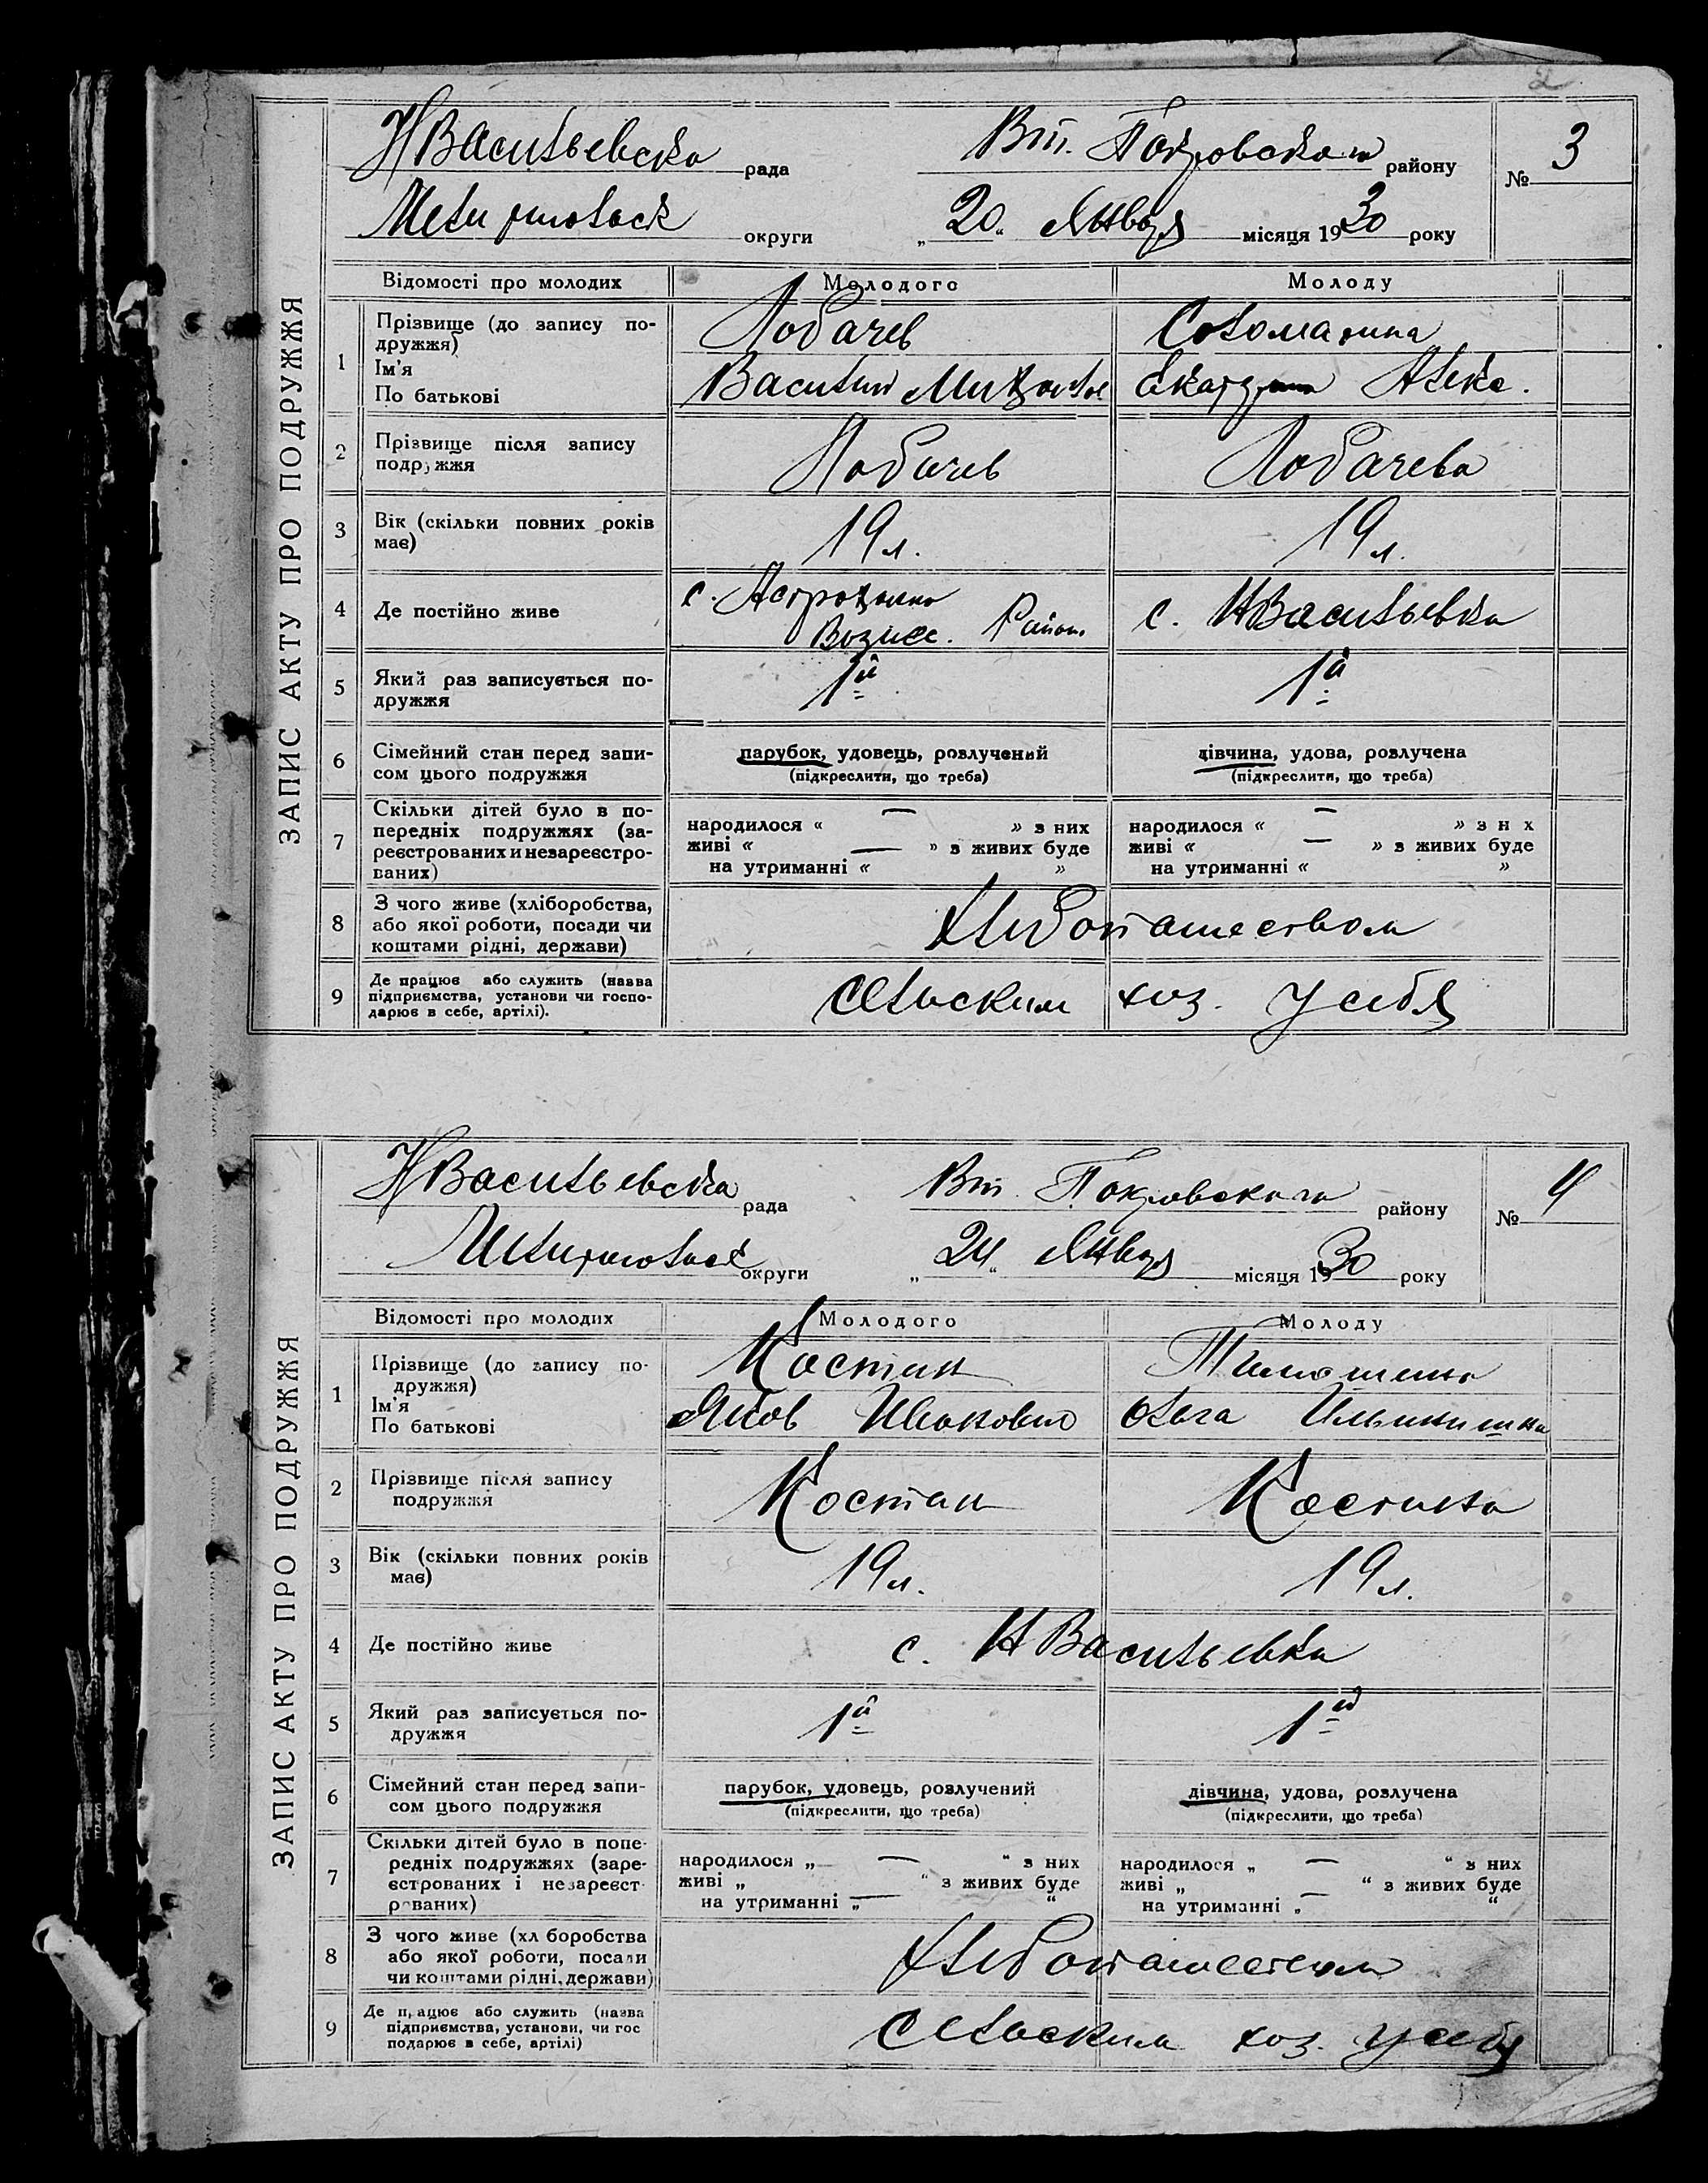 2
ЗАПИС АКТУ ПРО ПОДРУЖЖЯ
НВасильевска рада Вт. Покровскаго району № 3
Мелитопольск округи „20“ Января місяця 1930 року
Відомості про молодих Молодого Молоду
1 Прізвище (до запису по-
дружжя)
Ім'я
По батькові
Лобачев
Василий
Соломатина
Екатерина Алекс.
2 Прізвище після запису
подружжя
Лобачев Лобачева
3 Вік (скільки повних років
має)
19 л. 19 л.
4 Де постійно живе
с.
Вознес. Район.
с. НВасильевка
5 Який раз записується по-
дружжя
1й 1й
6 Сімейний стан перед запи-
сом цього подружжя
парубок, удовець, розлучений
(підкреслити, що треба)
дівчина, удова, розлучена
(підкреслити, що треба)
7 Скільки дітей було в по-
передніх подружжях (за-
реєстрованих и незареєстро-
ваних)
народилося « — » з них
живі « — » з живих буде
на утриманні « »
народилося « — » з н х
живі « — » з живих буде
на утриманні « »
8 З чого живе (хліборобства,
або якої роботи, посади чи
коштами рідні, держави)
Хлебопашеством
9 Де працює або служить (назва
підприємства, установи чи госпо-
дарює в себе, артілі).
Сельским хоз. у себя
ЗАПИС АКТУ ПРО ПОДРУЖЖЯ
НВасильевска рада Вт. Покровскаго району № 4
Мелитопольск округи „24“ Января місяця 1930 року
Відомості про молодих Молодого Молоду
1 Прізвище (до запису по-
дружжя)
Ім'я
По батькові
Костин
Яков Иванович
Тимошкина
Ольга Ильинишна
2 Прізвище після запису
подружжя
Костин Костина
3 Вік (скільки повних років
має)
19 л. 19 л.
4 Де постійно живе
с. НВасильевка
5 Який раз записується по-
дружжя
1й 1й
6 Сімейний стан перед запи-
сом цього подружжя
парубок, удовець, розлучений
(підкреслити, що треба)
дівчина, удова, розлучена
(підкреслити, що треба)
7 Скільки дітей було в попе-
редніх подружжях (заре-
єстрованих і незареєст-
рованих)
народилося „ — “ з них
живі „ “ з живих буде
на утриманні „ — “
народилося „ — “ з них
живі „ “ з живих буде
на утриманні „ — “
8 З чого живе (хл боробства
або якої роботи, посади
чи коштами рідні, держави)
Хлебопашеством
9 Де працює або служить (назва
підприємства, установи, чи гос
подарює в себе, артілі)
Сельским хоз. у себя